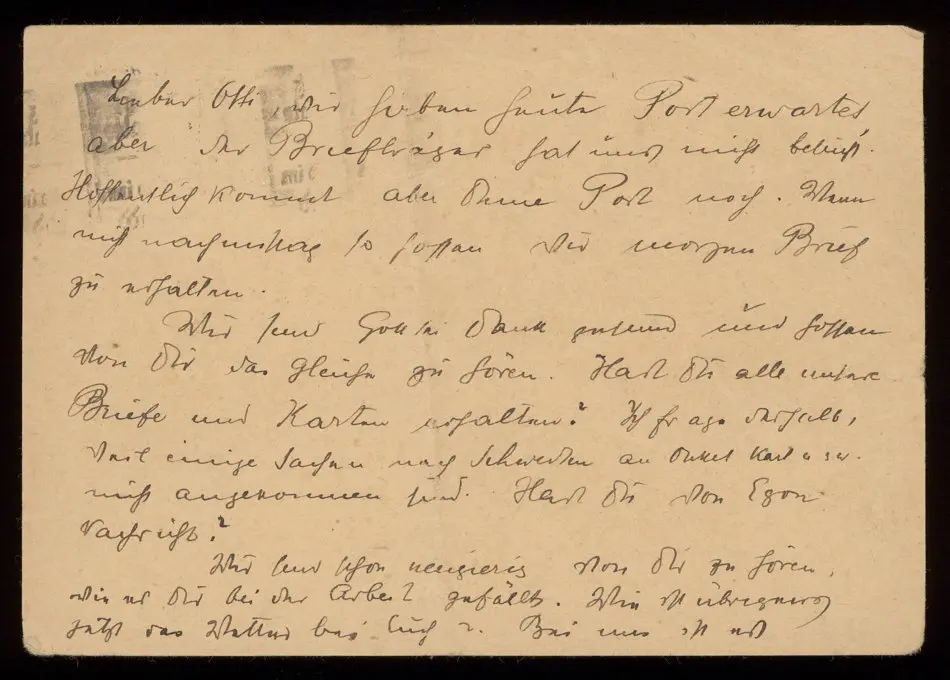 Lieber Otti, wir haben heute Post erwartet
aber der Briefträger hat uns nicht beliefert.
Hoffentlich kommt aber Deine Post noch. Wenn
nicht nachmittag so hoffen wir morgen Brief
zu erhalten.
Wir sind Gott sei Dank gesund und hoffen
von Dir das Gleiche zu hören. Hast Du alle unsere
Briefe und Karten erhalten? Ich frage deshalb,
weil einige Sachen nach Schweden an Onkel Karl u s w.
nicht angekommen sind. Hast Du von Egon
Nachricht?
Wir sind schon neugierig von Dir zu hören,
wie es Dir bei der Arbeit gefällt. Wie ist übrigens
jetzt das Wetter bei Euch?. Bei uns ist es